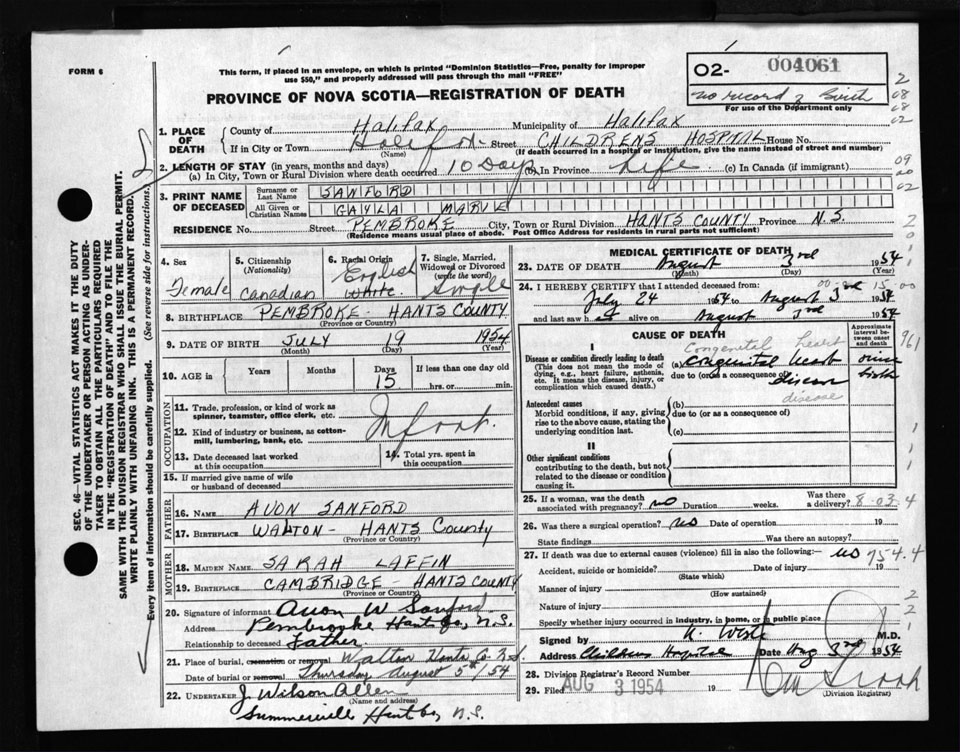 FORM 6
This form, if placed in an envelope, on which is printed "Dominion Statistics—Free, penalty for improper
use $50," and properly addressed will pass through the mail "FREE"
PROVINCE OF NOVA SCOTIA—REGISTRATION OF DEATH
02- 004061
no record of birth
For use of the Department only
1. PLACE OF DEATH
County of Halifax Municipality of Halifax
If in City or Town Halifax Street CHILDRENS HOSPITAL House No.
(Name) (If death occurred in a hospital or institution, give the name instead of street and number)
2. LENGTH OF STAY (in years, months and days)
(a) In City, Town or Rural Division where death occurred 10 Days (b) In Province Life (c) In Canada (if immigrant)
3. PRINT NAME OF DECEASED
Surname or Last Name SANFORD
All Given or Christian Names GAYLA MARIE
RESIDENCE No. Street PEMBROKE City, Town or Rural Division HANTS COUNTY Province N.S.
(Residence means usual place of abode. Post Office Address for residents in rural parts not sufficient)
4. Sex Female
5. Citizenship (Nationality) Canadian
6. Racial Origin English White
7. Single, Married, Widowed or Divorced (write the word) Single
8. BIRTHPLACE PEMBROKE - HANTS COUNTY
(Province or County)
9. DATE OF BIRTH JULY 19 1954
(Month) (Day) (Year)
10. AGE in Years Months Days 15 If less than one day old hrs. or min.
OCCUPATION
11. Trade, profession, or kind of work as spinner, teamster, office clerk, etc.
Infant.
12. Kind of industry or business, as cotton-mill, lumbering, bank, etc.
13. Date deceased last worked at this occupation
14. Total yrs. spent in this occupation
15. If married give name of wife or husband of deceased
FATHER
16. NAME AVON SANFORD
17. BIRTHPLACE WALTON - HANTS County
(Province or County)
MOTHER
18. MAIDEN NAME SARAH LAFFIN
19. BIRTHPLACE CAMBRIDGE - HANTS COUNTY
(Province or County)
20. Signature of informant Avon W Sanford
Address Pembrooke Hants Co, N.S.
Relationship to deceased Father.
21. Place of burial, cremation or removal Walton Hants Co N.S.
Date of burial or removal Thursday August 5th/54
22. UNDERTAKER J. Wilson Allen
(Name and address)
Summerville Hants Co, N.S.
MEDICAL CERTIFICATE OF DEATH
23. DATE OF DEATH August 3rd 1954
(Month) (Day) (Year)
24. I HEREBY CERTIFY that I attended deceased from:
July 24 1954 to August 3rd 1954
and last saw h alive on August 3rd 1954
CAUSE OF DEATH
Approximate interval between onset and death
I
Disease or condition directly leading to death
(This does not mean the mode of dying, e.g., heart failure, asthenia, etc. It means the disease, injury, or complication which caused death.)
Congenital heart disease
(a) Congenital Heart Disease since birth
due to (or as a consequence of)
Antecedent causes
Morbid conditions, if any, giving rise to the above cause, stating the underlying condition last.
(b)
due to (or as a consequence of)
(c)
II
Other significant conditions
contributing to the death, but not related to the disease or condition causing it.
25. If a woman, was the death associated with pregnancy? no Duration weeks. Was there a delivery? 8-03-4
26. Was there a surgical operation? no Date of operation 19
State findings Was there an autopsy?
27. If death was due to external causes (violence) fill in also the following:— no 754.4
Accident, suicide or homicide? Date of injury 19
(State which)
Manner of injury
(How sustained)
Nature of injury
Specify whether injury occurred in industry, in home, or in public place
Signed by M.D.
Address Childrens Hospital Date Aug 3rd 1954
28. Division Registrar's Record Number
29. Filed AUG 3 1954 19
(Division Registrar)
SEC. 46—VITAL STATISTICS ACT MAKES IT THE DUTY
OF THE UNDERTAKER OR PERSON ACTING AS UNDERTAKER TO OBTAIN ALL THE PARTICULARS REQUIRED
IN THE "REGISTRATION OF DEATH" AND TO FILE THE
SAME WITH THE DIVISION REGISTRAR WHO SHALL ISSUE THE BURIAL PERMIT.
WRITE PLAINLY WITH UNFADING INK. THIS IS A PERMANENT RECORD.
Every item of information should be carefully supplied. (See reverse side for instructions.)